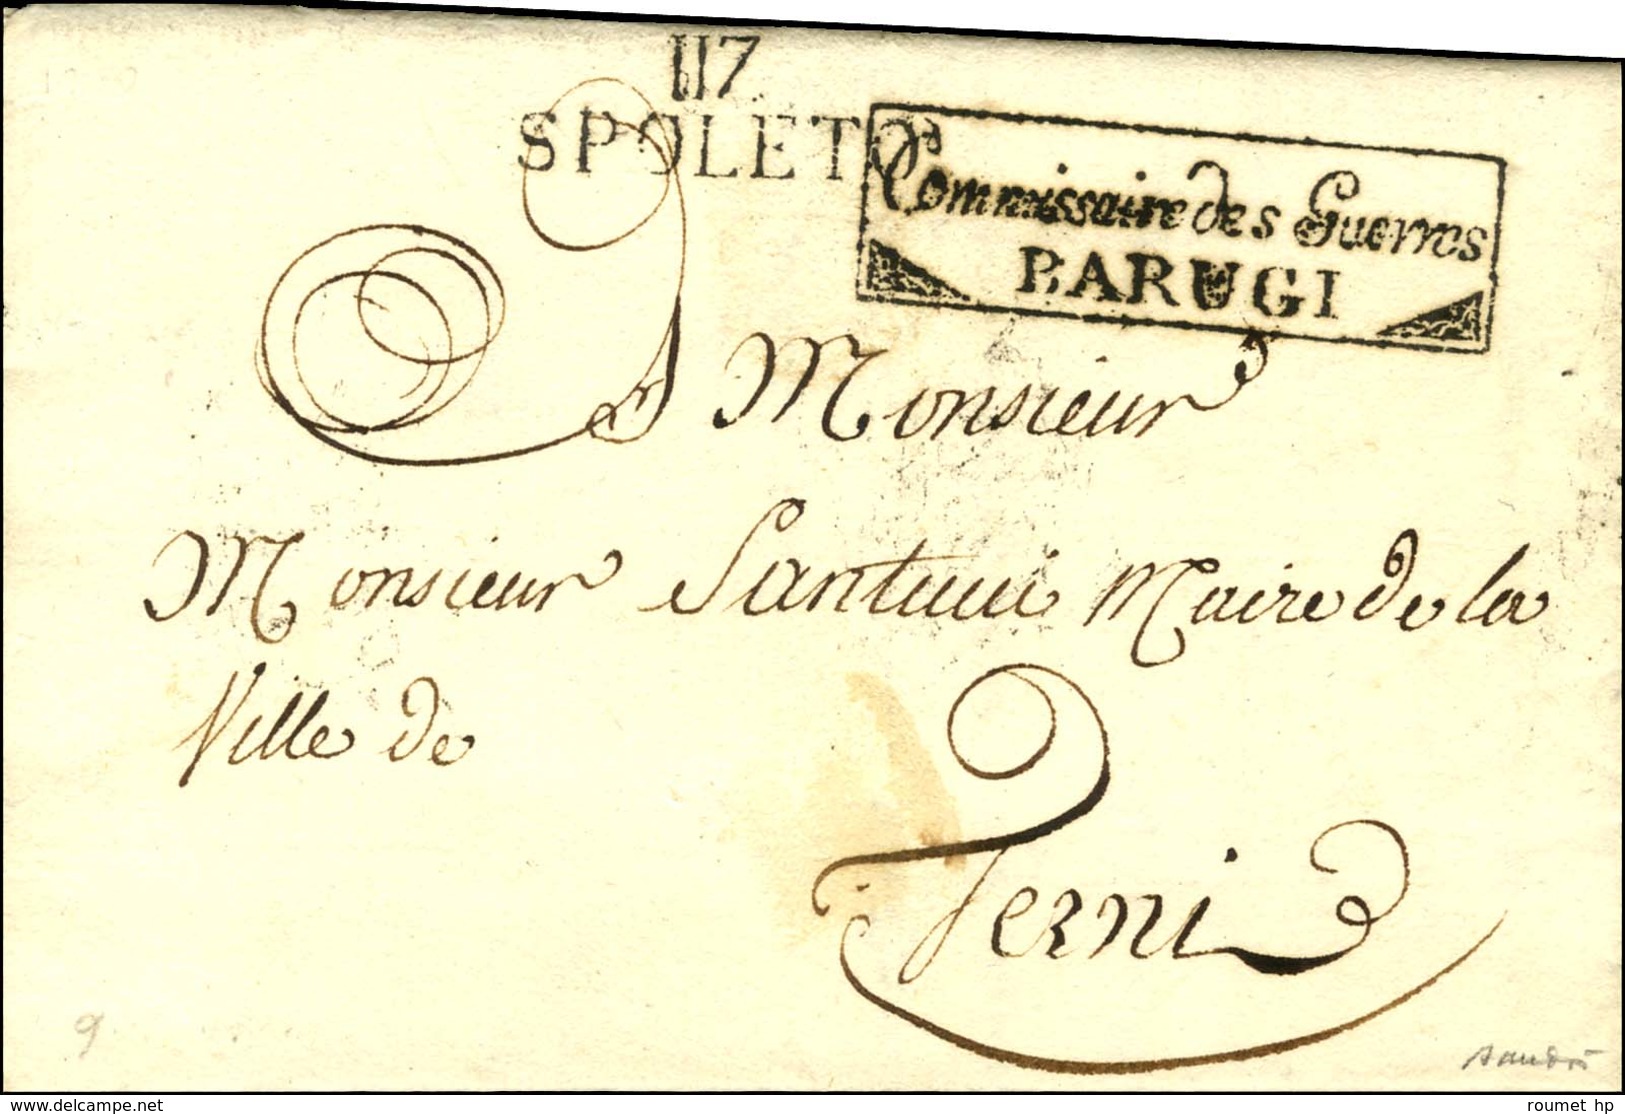 117
SPOLETO
Commissaire des Guerres
BARUGI
Monsieur
Monsieur Santuui Maire de la
Ville de
Terni
9
delcampe.net
roumet hp